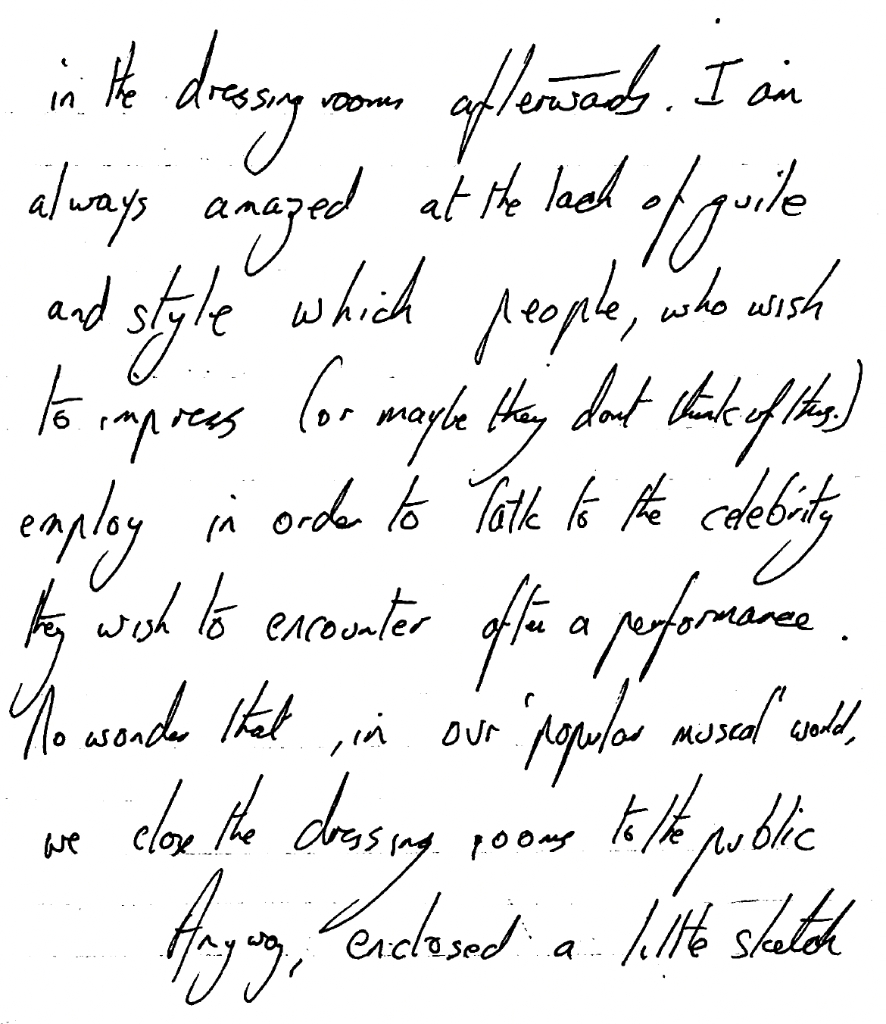 in the dressing rooms afterwards. I am
always amazed at the lack of guile
and style which people, who wish
to impress (or maybe they dont think of this.)
employ in order to talk to the celebrity
they wish to encounter after a performance.
No wonder that, in our 'popular musical' world,
we close the dressing rooms to the public
Anyway, enclosed a little sketch